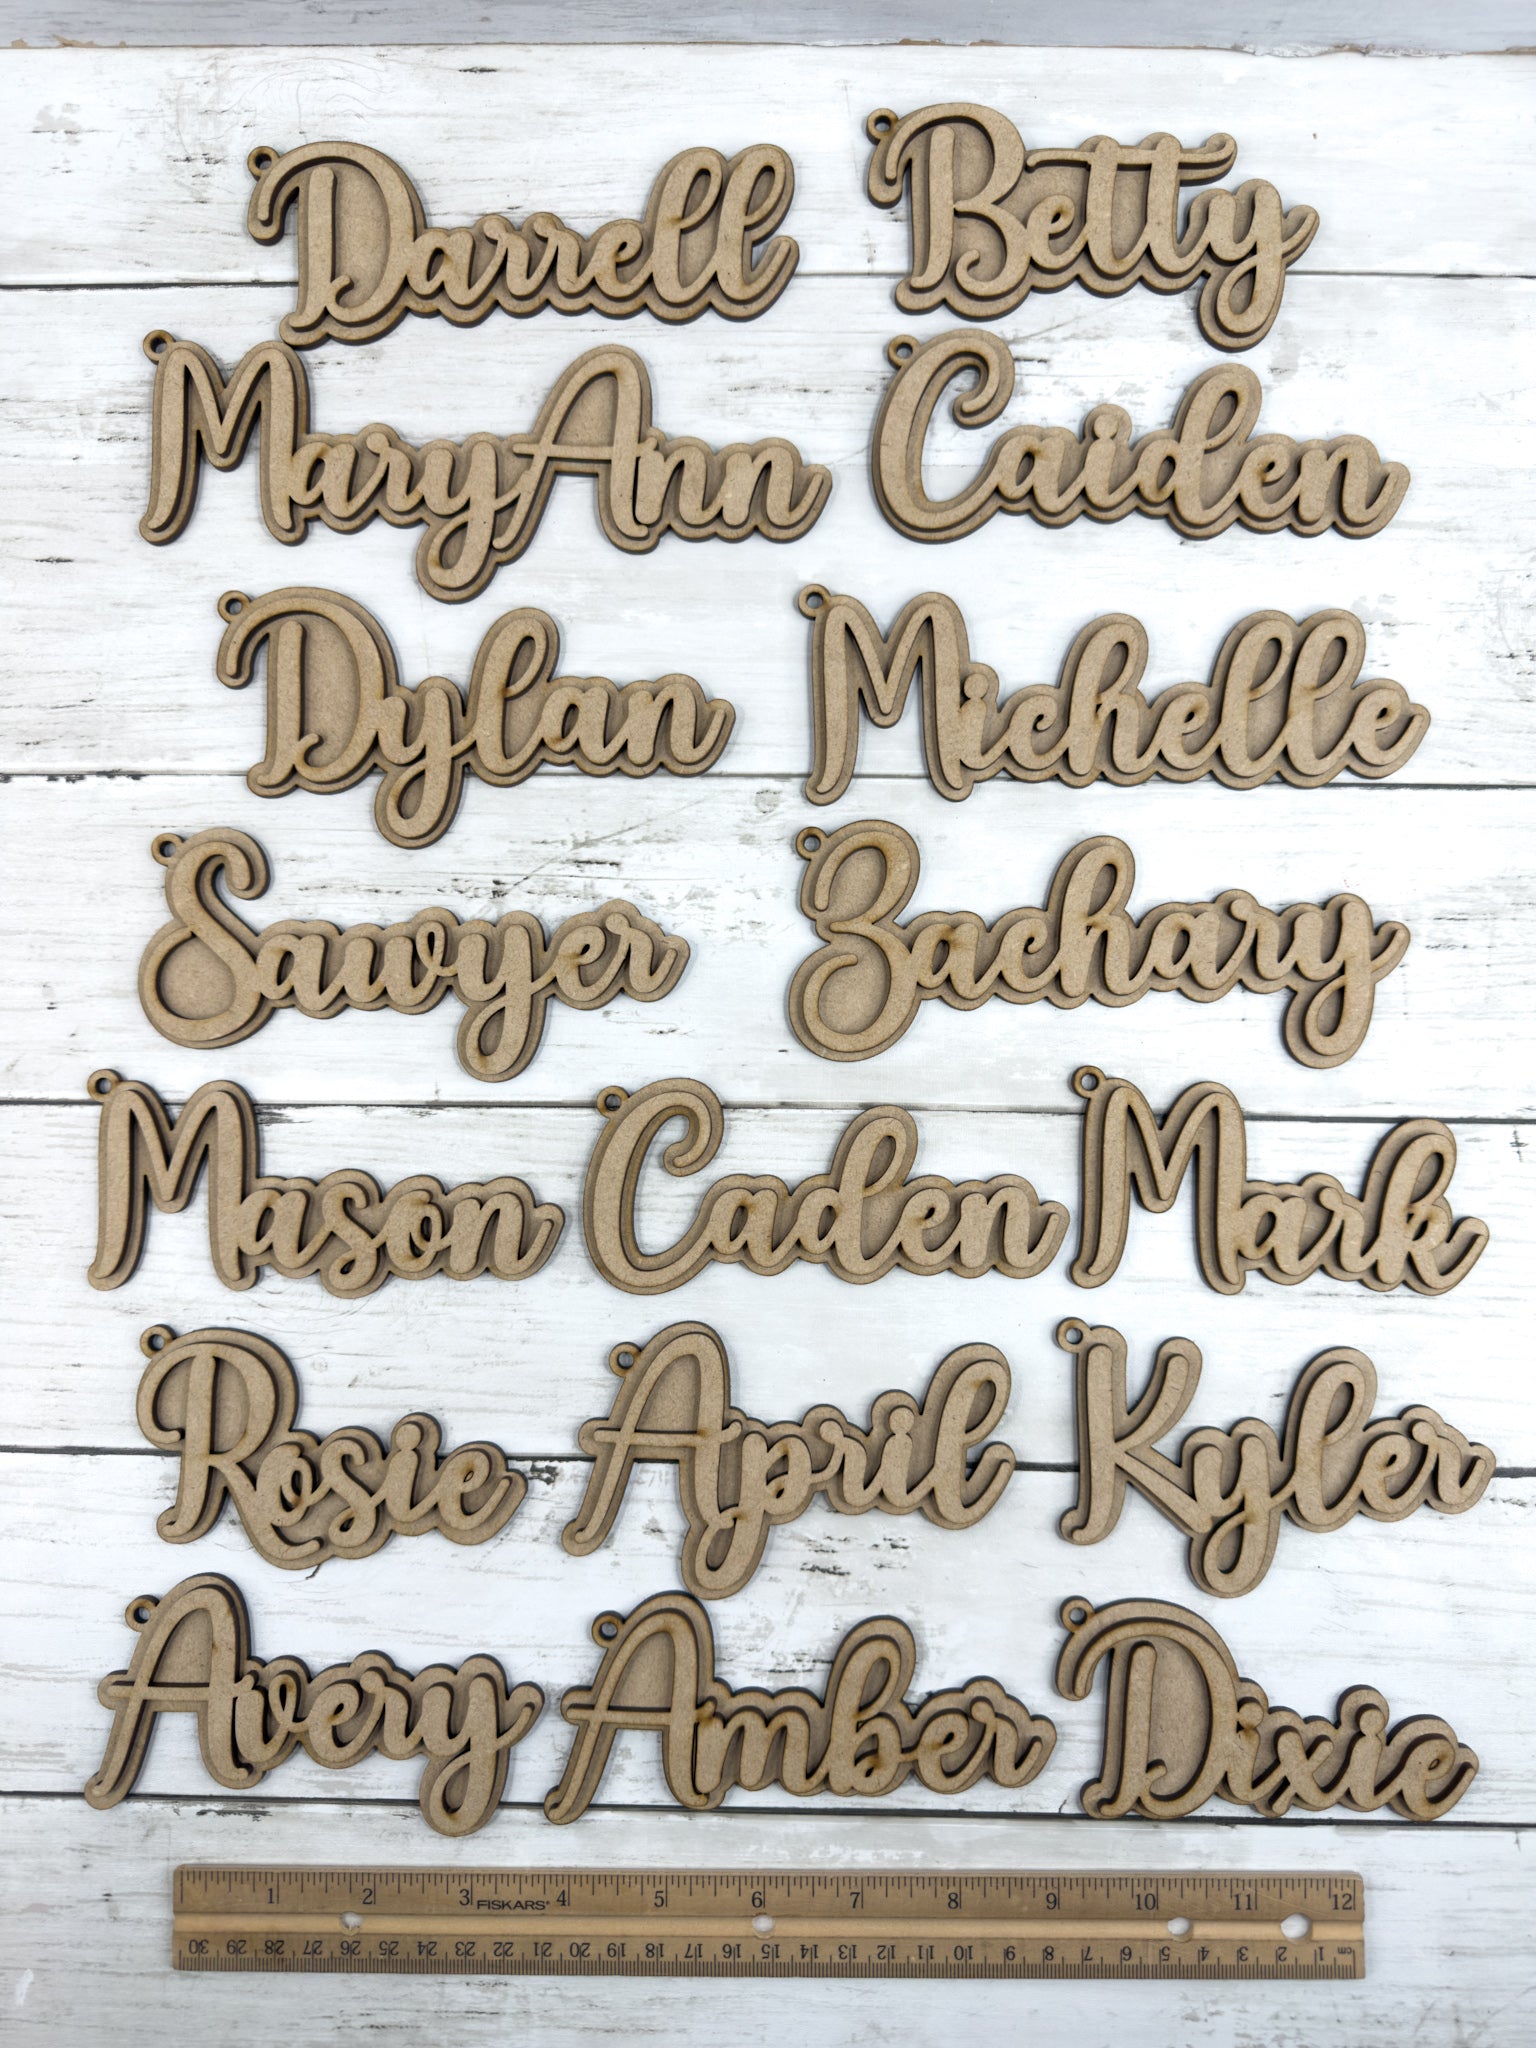 Darrell Betty
MaryAnn Caiden
Dylan Michelle
Sawyer Zachary
Mason Caden Mark
Rosie April Kyler
Avery Amber Dixie
1 2 3 FISKARS® 4 5 6 7 8 9 10 11 12
30 29 28 27 26 25 24 23 22 21 20 19 18 17 16 15 14 13 12 11 10 9 8 7 6 5 4 3 2 1 cm